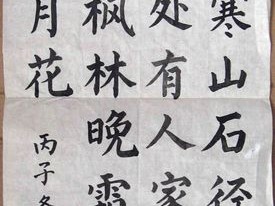 寒山石径
处有人家
枫林晚霜
月花
丙子冬